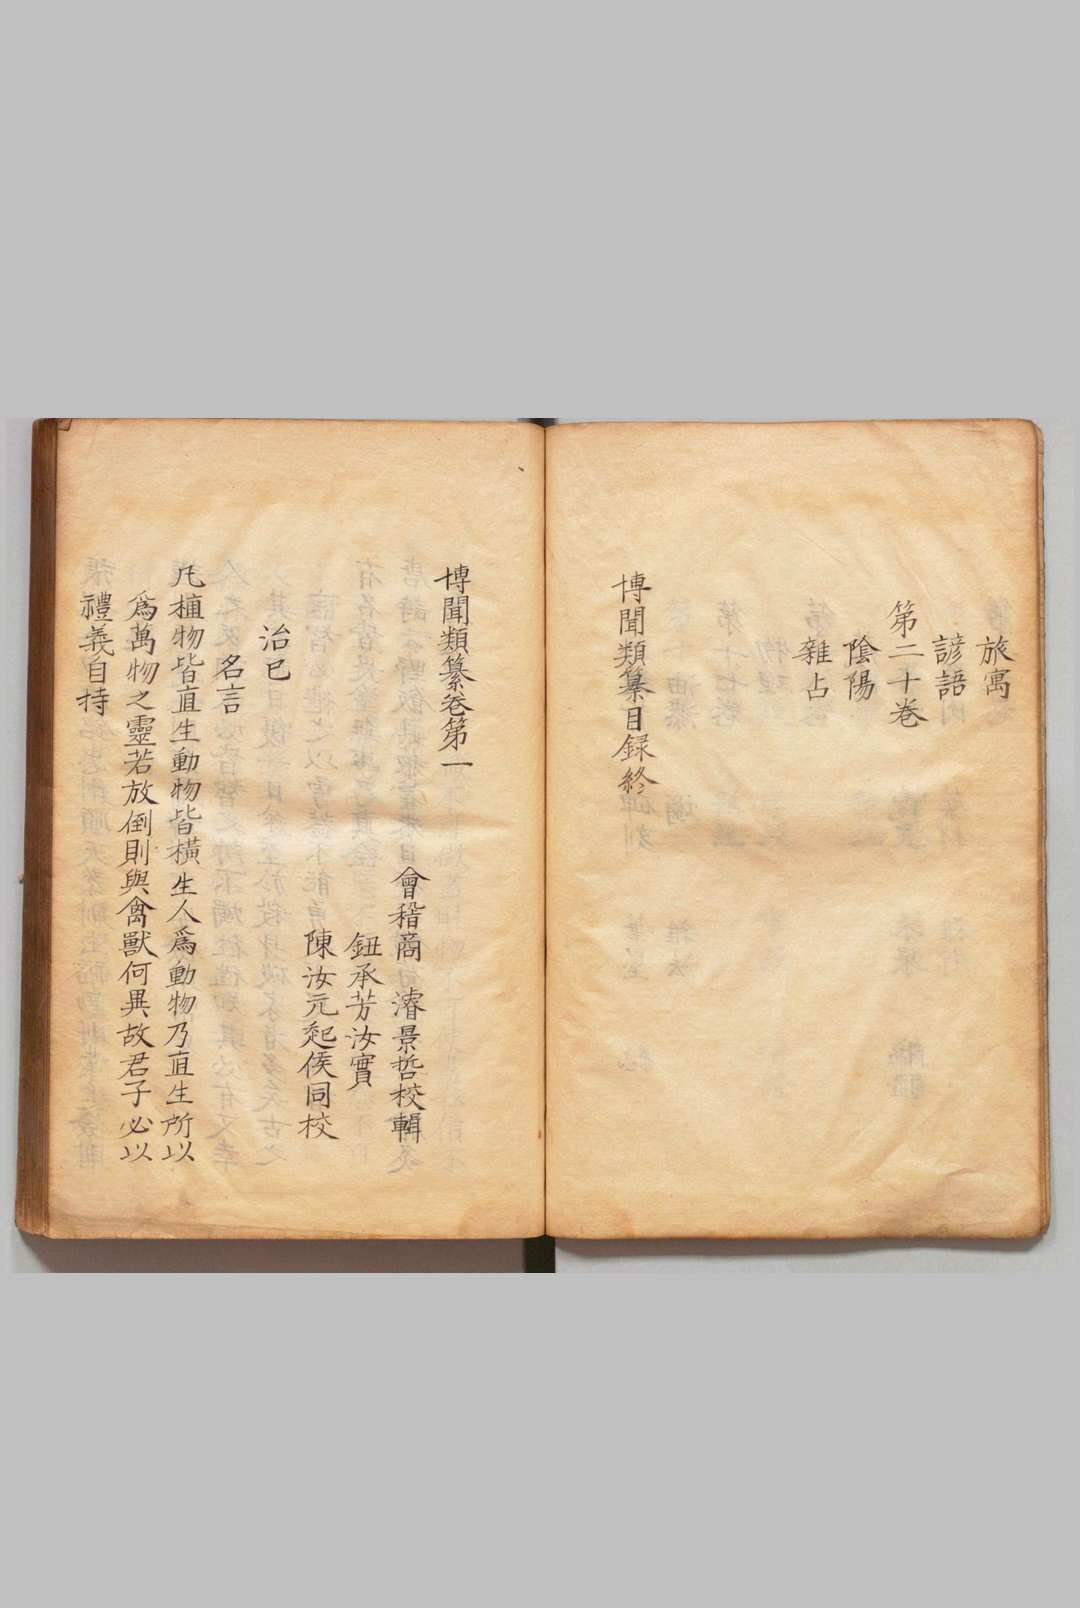 旅寓
諺語
第二十卷
陰陽
雜占
博聞類纂目録終
博聞類纂卷第一
會稽商 濬景哲校輯
鈕承芳汝實
陳汝元起侯同校
治已
名言
凡植物皆直生動物皆橫生人爲動物乃直生所以
爲萬物之靈若放倒則與禽獸何異故君子必以
禮義自持